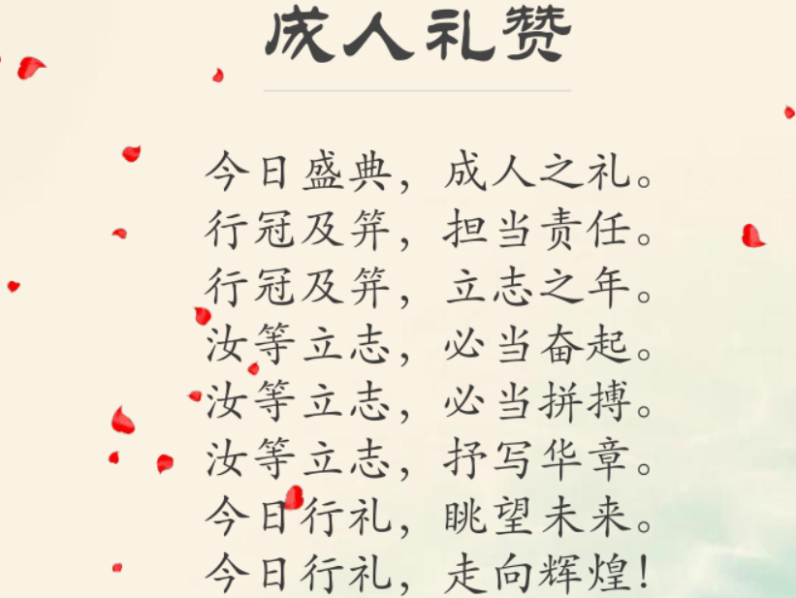 成人礼赞
今日盛典，成人之礼。
行冠及笄，担当责任。
行冠及笄，立志之年。
汝等立志，必当奋起。
汝等立志，必当拼搏。
汝等立志，抒写华章。
今日行礼，眺望未来。
今日行礼，走向辉煌！